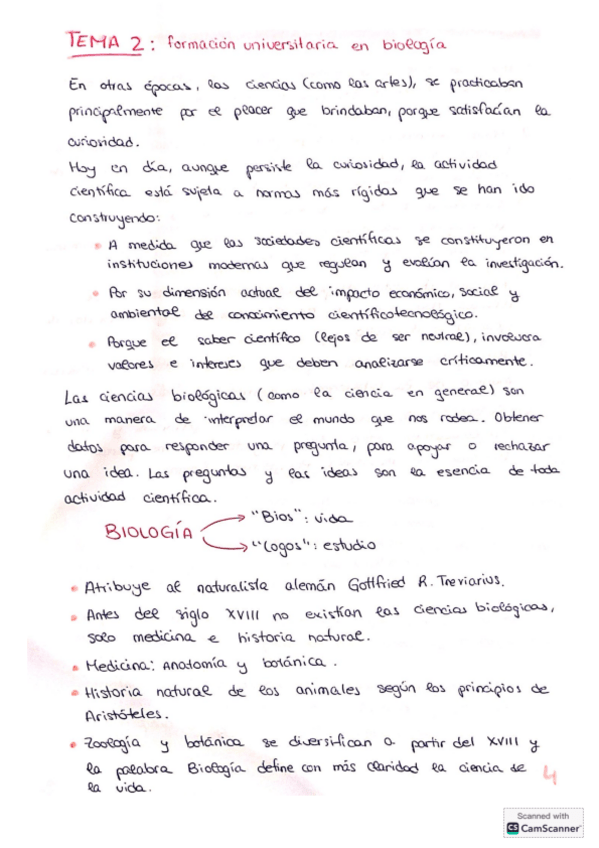 TEMA 2: formación universitaria en biología
En otras épocas, las ciencias (como las artes), se practicaban
principalmente por el placer que brindaban, porque satisfacían la
curioridad.
Hoy en día, aunque persiste la curiosidad, la actividad
científica está sujeta a normas más rígidas que se han ido
construyendo:
• A medida que las sociedades científicas se constituyeron en
instituciones modernas que regulan y evalúan la investigación.
• Por su dimensión actual del impacto económico, social y
ambiental del conocimiento científicotecnológico.
• Porque el saber científico (lejos de ser neutral), involucra
valores e intereses que deben analizarse críticamente.
Las ciencias biológicas (como la ciencia en general) son
una manera de interpretar el mundo que nos rodea. Obtener
datos para responder una pregunta, para apoyar o rechazar
una idea. Las preguntas y las ideas son la esencia de toda
actividad científica.
BIOLOGÍA
"Bios": vida
"Logos": estudio
• Atribuye al naturalista alemán Gottfried R. Treviarius.
• Antes del siglo XVIII no existían las ciencias biológicas,
solo medicina e historia natural.
• Medicina: Anatomía y botánica.
• Historia natural de los animales según los principios de
Aristóteles.
• Zoología y botánica se diversifican a partir del XVIII y
la palabra Biología define con más claridad la ciencia de
la vida.
4
Scanned with
CS CamScanner